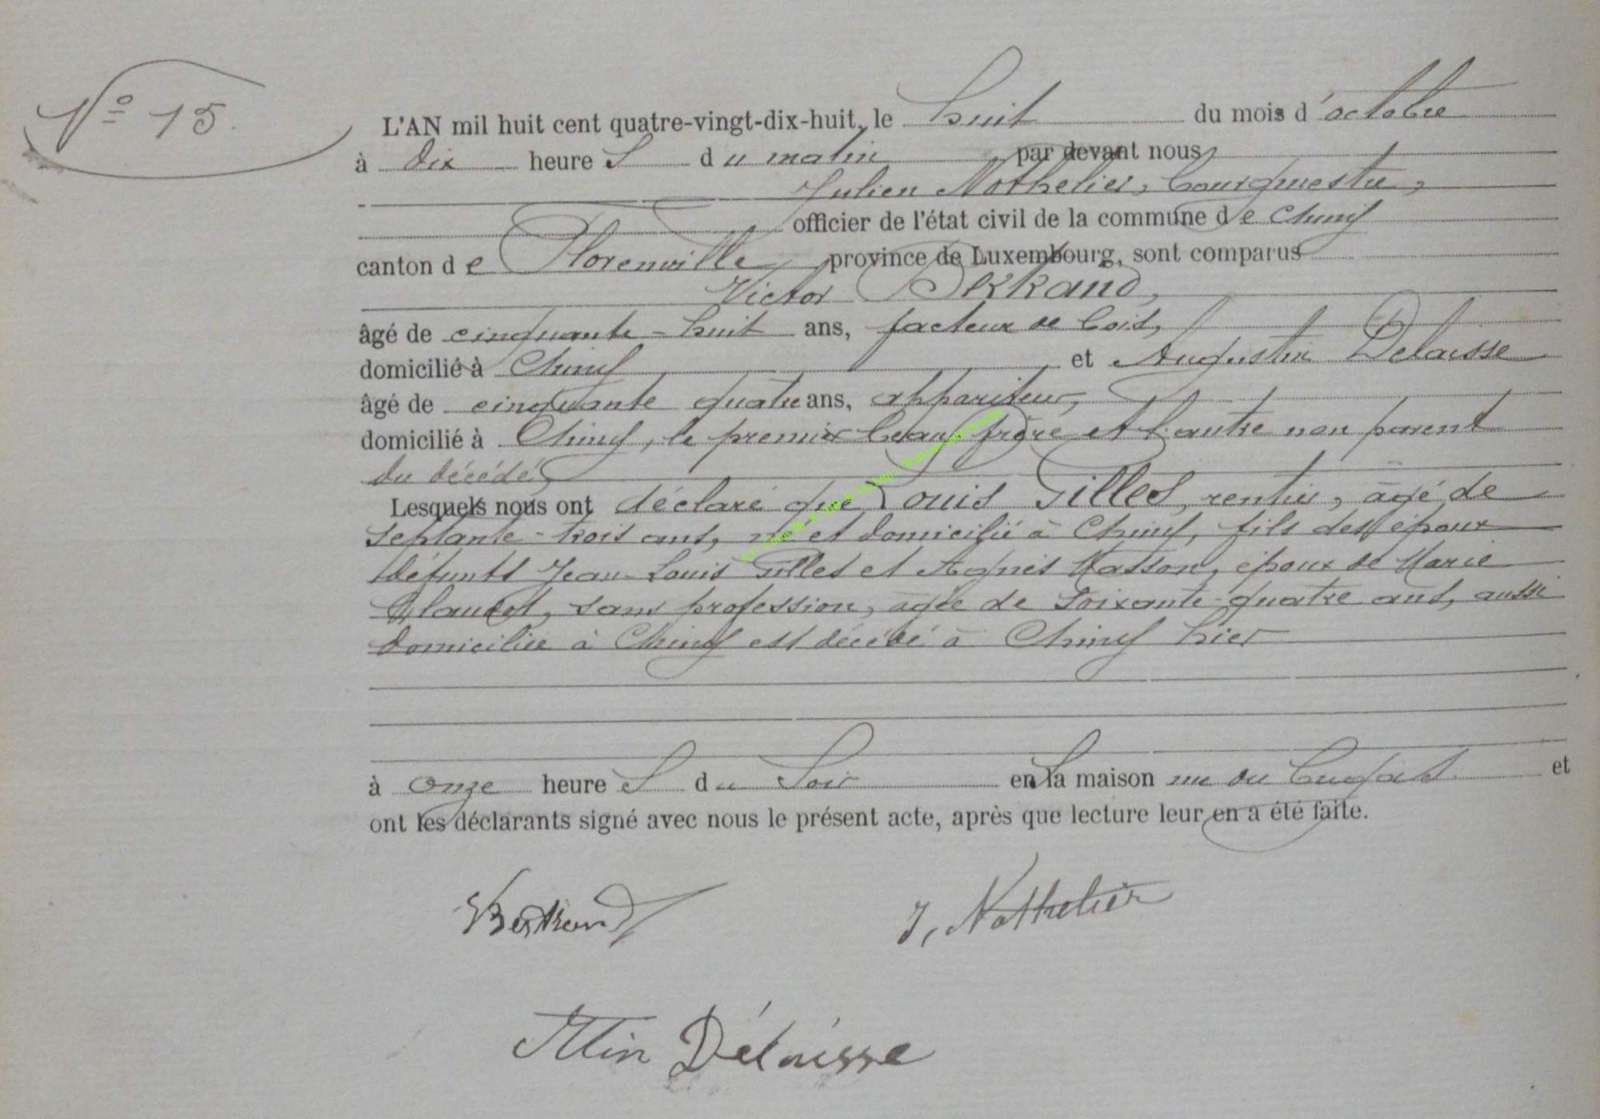 N° 15.
L'AN mil huit cent quatre-vingt-dix-huit, le huit du mois d'octobre
à dix heures du matin par devant nous
Julien Nothelier, bourgmestre,
officier de l'état civil de la commune de Chiny
canton de Florenville province de Luxembourg, sont comparus
Victor Bertrand,
âgé de cinquante-huit ans, facteur de bois,
domicilié à Chiny et Augustin Delaisse
âgé de cinquante quatre ans, appariteur,
domicilié à Chiny, le premier beau frère et l'autre non parent
du décédé,
Lesquels nous ont déclaré que Louis Gilles, rentier, âgé de
septante-trois ans, né et domicilié à Chiny, fils des époux
défunts Jean-Louis Gilles et Agnès Masson, époux de Marie
sans profession, âgée de soixante-quatre ans, aussi
domiciliée à Chiny est décédé à Chiny hier
à onze heures du soir en sa maison rue du et
ont les déclarants signé avec nous le présent acte, après que lecture leur en a été faite.
Bertrand J. Nothelier
Délaisse